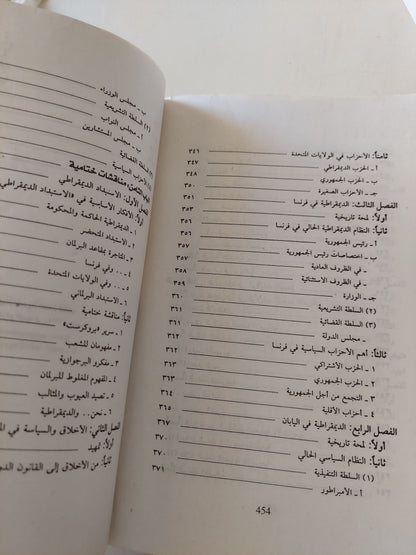 ثامناً: الأحزاب في الولايات المتحدة ٣٤٦
أ - الحزب الديمقراطي ٣٤٧
ب - الحزب الجمهوري ٣٤٨
جـ - الأحزاب الصغيرة ٣٥٠
الفصل الثالث: الديمقراطية في فرنسا ٣٥١
أولاً: لمحة تاريخية ٣٥١
ثانياً: النظام الديمقراطي الحالي في فرنسا ٣٥٦
أ - رئيس الجمهورية ٣٥٧
ب - اختصاصات رئيس الجمهورية ٣٥٧
- في الظروف العادية ٣٥٧
- في الظروف الاستثنائية ٣٥٨
جـ - الوزارة ٣٦٠
(٢) السلطة التشريعية ٣٦٠
(٣) السلطة القضائية ٣٦١
- مجلس الدولة ٣٦٢
ثالثاً: أهم الأحزاب السياسية في فرنسا ٣٦٢
١ - الحزب الاشتراكي ٣٦٣
٢ - الحزب الجمهوري ٣٦٣
٣ - التجمع من أجل الجمهورية ٣٦٤
٤ - أحزاب الأقلية ٣٦٥
الفصل الرابع: الديمقراطية في اليابان ٣٦٧
أولاً: لمحة تاريخية ٣٦٧
ثانياً: النظام السياسي الحالي ٣٧٠
(١) السلطة التنفيذية ٣٧٠
أ - الأمبراطور ٣٧١
454
ب - مجلس الوزراء
(٢) السلطة التشريعية
أ - مجلس النواب
ب - مجلس المستشارين
السلطة القضائية
الأحزاب السياسية
الثامن: مناقشات ختامية
الأول: الاستبداد الديمقراطي
أولاً: الأفكار الأساسية في «الاستبداد الديمقراطي
١ - الديمقراطية الحاكمة والمحكومة
٢ - الاستبداد المتحضر
٣ - المتاجرة بمقاعد البرلمان
٤ - .. وفي فرنسا
٥ - .. وفي الولايات المتحدة
٦ - الاستبداد البرلماني
ثانياً: مناقشة ختامية
١ - سرير «بروكرست»
٢ - مفهومان للشعب
٣ - مفكرو البرجوازية
٤ - المفهوم المغلوط للبرلمان
٥ - تصيد العيوب والمثالب
٦ - نحن.. والديمقراطية
الفصل الثاني: الأخلاق والسياسة في
أولاً: تمهيد
ثانياً: من الأخلاق إلى القانون